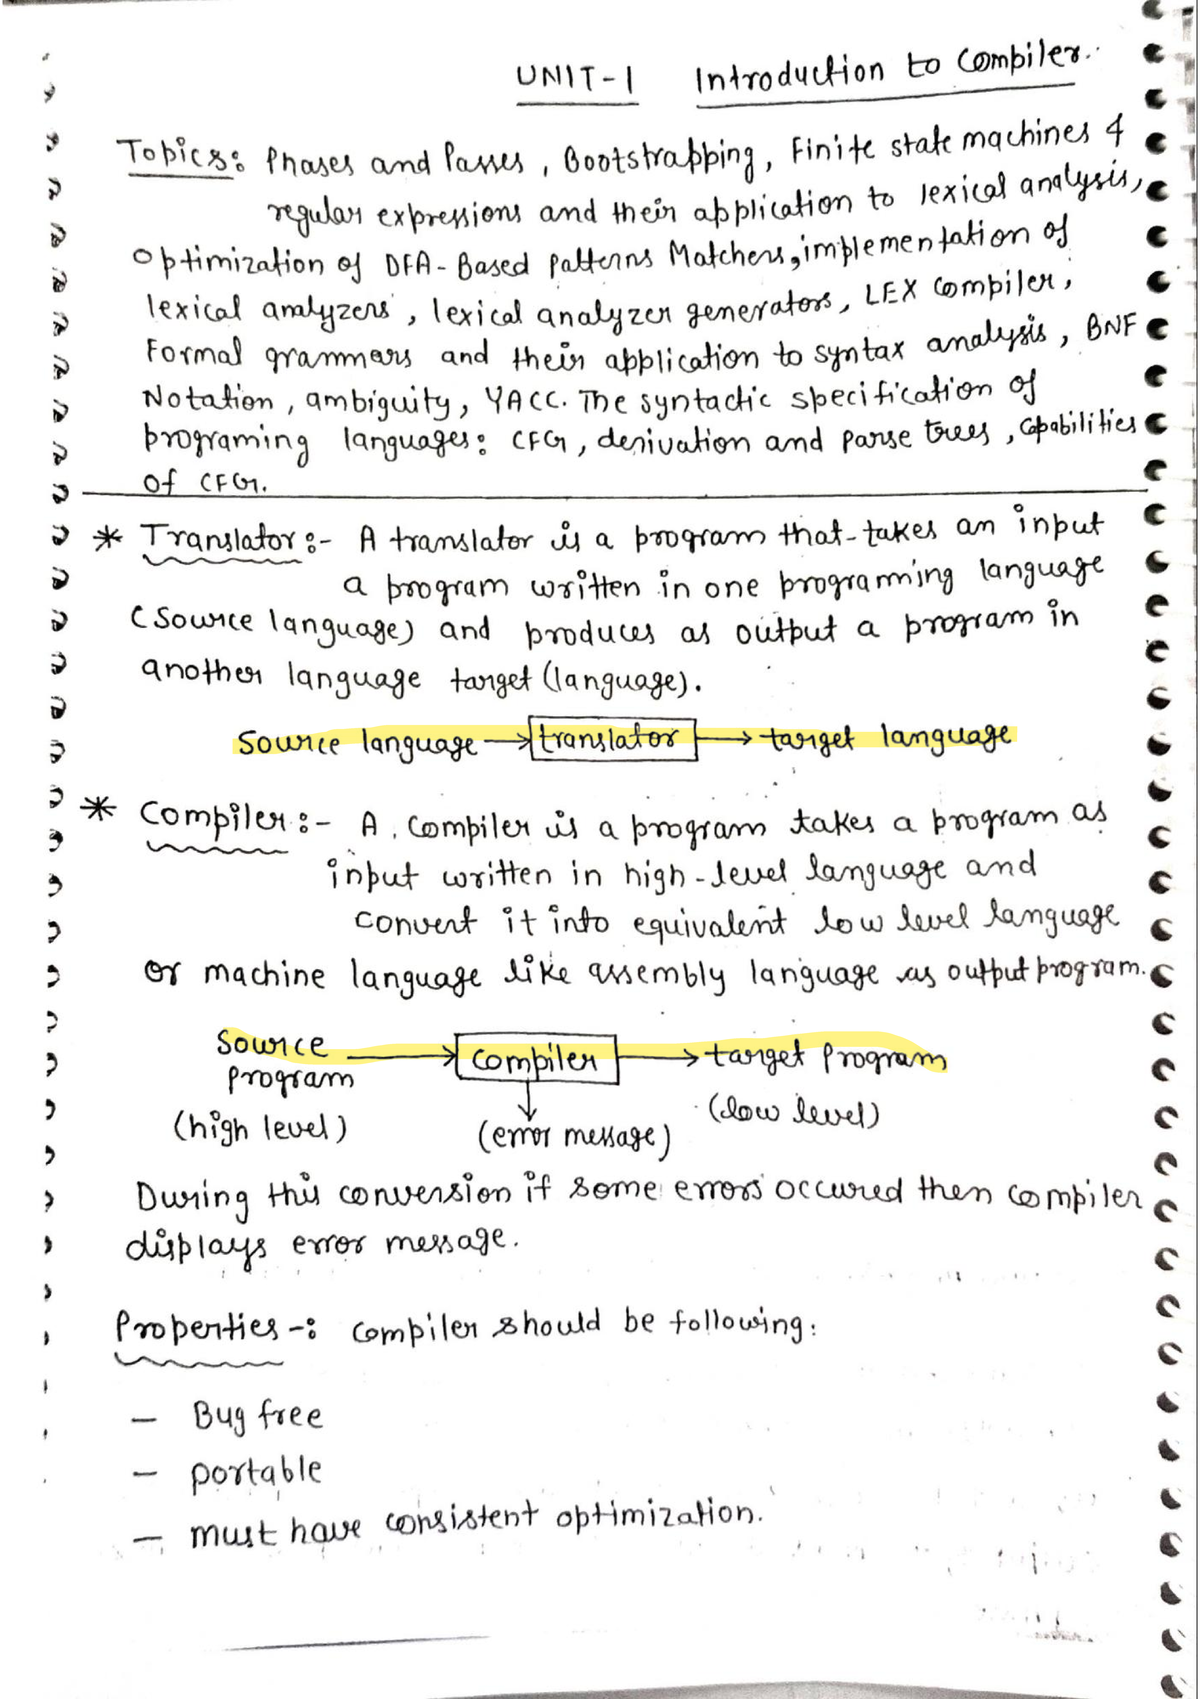 UNIT-1 Introduction to Compiler.
Topics: Phases and Passes, Bootstrapping, Finite state machines &
regular expressions and their application to lexical analysis,
Optimization of DFA-Based Patterns Matchers, implementation of
lexical analyzers, lexical analyzer generators, LEX compiler,
Formal grammars and their application to syntax analysis, BNF
Notation, ambiguity, YACC. The syntactic specification of
programing languages: CFG, derivation and Parse trees, Capabilities
of CFG.
* Translator:- A translator is a program that takes an input
a program written in one programing language
(Source language) and produces as output a program in
another language target (language).
Source language → translator → target language
* Compiler:- A compiler is a program takes a program as
input written in high-level language and
convert it into equivalent low level language
or machine language like assembly language as output program.
Source → compiler → target program
program
(high level) (error message) (low level)
During this conversion if some errors occured then compiler
displays error message.
Properties-: Compiler should be following:
- Bug free
- portable
- must have consistent optimization.